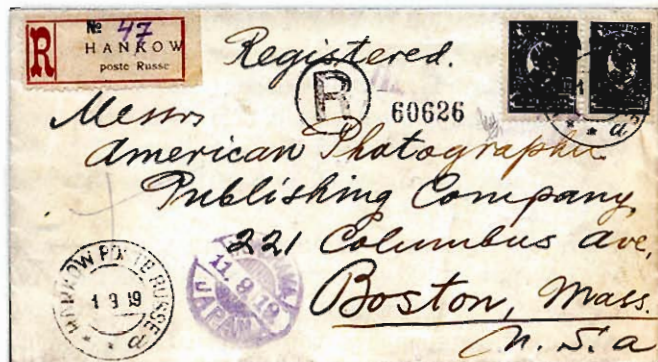 R
№ 47
HANKOW
poste Russe
Registered.
R
60626
Messrs
American Photographic
Publishing Company
221 Columbus Ave,
Boston, Mass.
U.S.a
HANKOW POSTE RUSSE
1 9 19
a
11.9.19
JAPAN
a